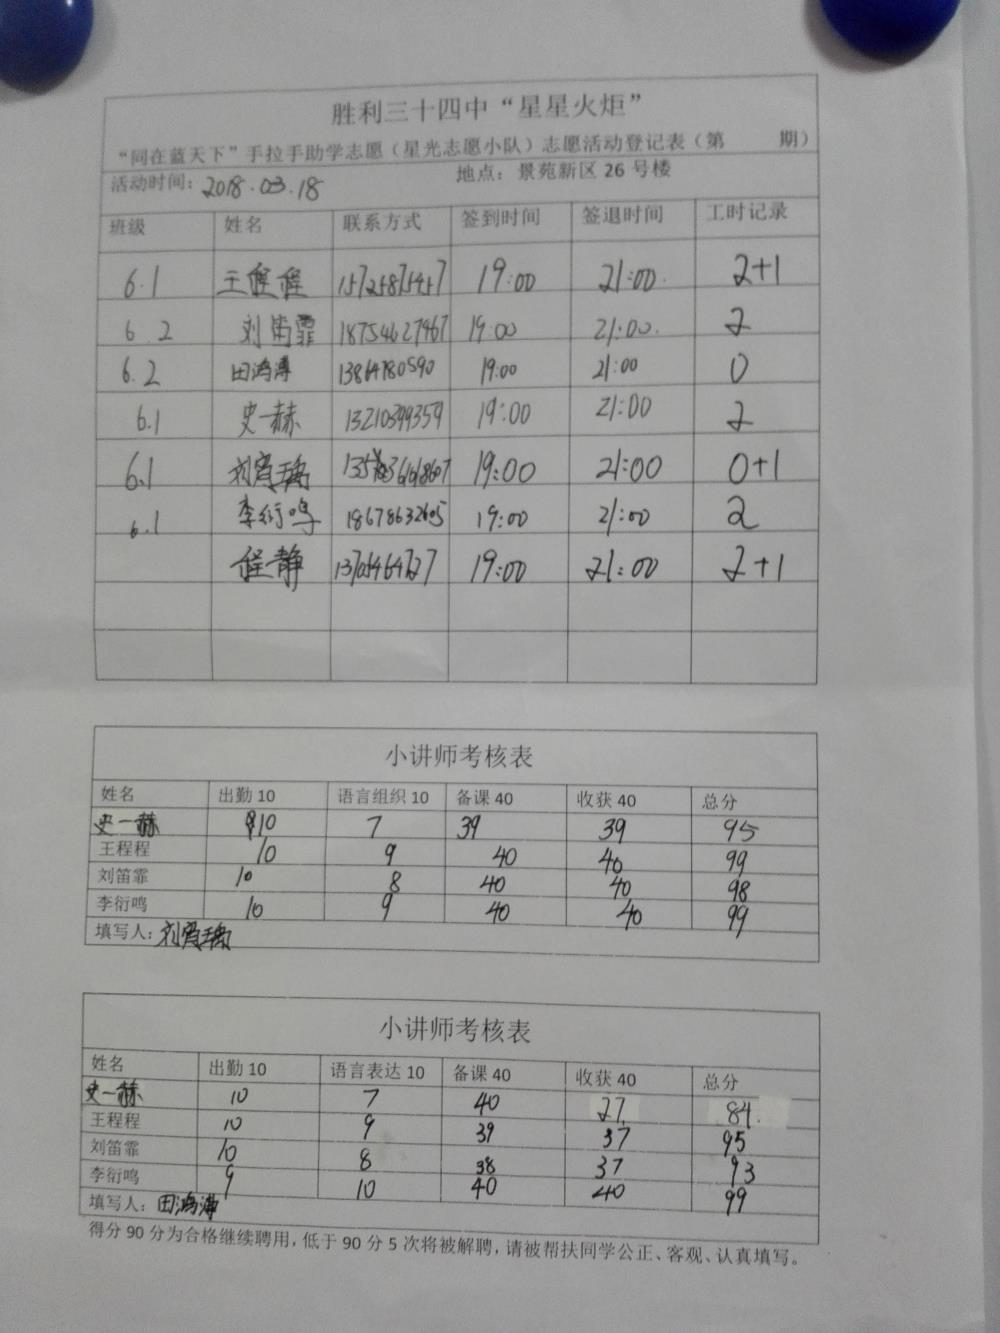 胜利三十四中“星星火炬”
“同在蓝天下”手拉手助学志愿（星光志愿小队）志愿活动登记表（第 期）
活动时间：2018.03.18 地点：景苑新区 26 号楼
班级 姓名 联系方式 签到时间 签退时间 工时记录
6.1 王程程 15725875457 19:00 21:00. 2+1
6.2 刘笛霏 18754627967 19:00 21:00. 2
6.2 田鸿溥 13864780590 19:00 21:00 0
6.1 史一赫 13210399359 19:00 21:00 2
6.1 19:00 21:00 0+1
6.1 李衍鸣 18678632605 19:00 21:00 2
程静 19:00 21:00 2+1
小讲师考核表
姓名 出勤 10 语言组织 10 备课 40 收获 40 总分
史一赫 10 7 39 39 95
王程程 10 9 40 40 99
刘笛霏 10 8 40 40 98
李衍鸣 10 9 40 40 99
填写人：
小讲师考核表
姓名 出勤 10 语言表达 10 备课 40 收获 40 总分
史一赫 10 7 40 27 84.
王程程 10 9 39 37 95
刘笛霏 10 8 38 37 93
李衍鸣 9 10 40 40 99
填写人：田鸿溥
得分 90 分为合格继续聘用，低于 90 分 5 次将被解聘，请被帮扶同学公正、客观、认真填写。